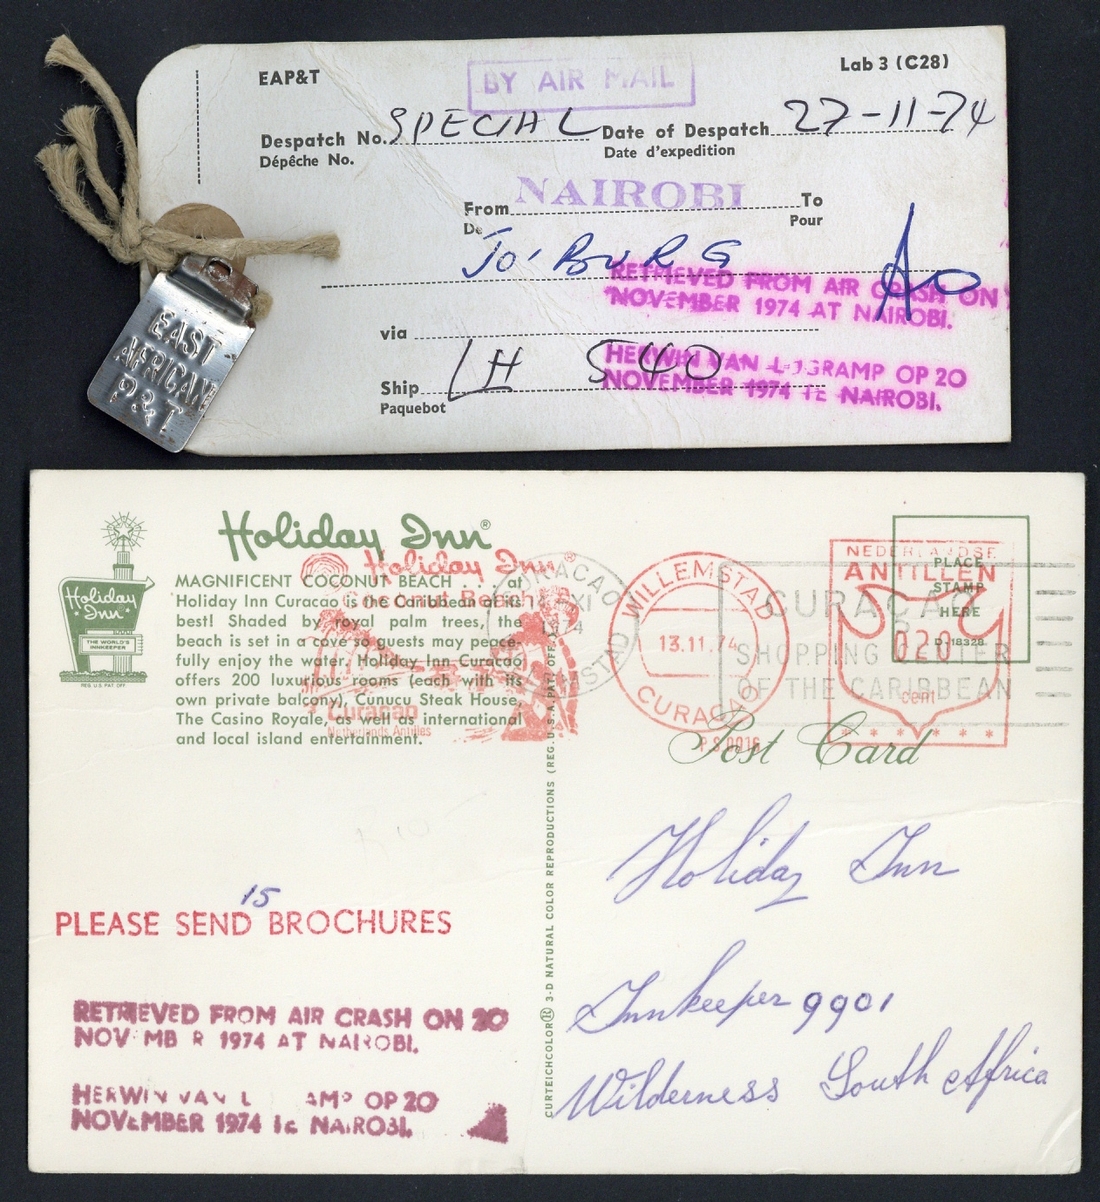 EAP&T
BY AIR MAIL
Lab 3 (C28)
Despatch No. SPECIAL Date of Despatch 27-11-74
Dépêche No. Date d'expedition
From NAIROBI To
De Pour
Jo'BURG
RETRIEVED FROM AIR CRASH ON
NOVEMBER 1974 AT NAIROBI.
via
HERWIN VAN OP 20
NOVEMBER 1974 TE NAIROBI.
Ship LH 540
Paquebot
EAST
AFRICAN
P&T
Holiday Inn®
Holiday
Inn
THE WORLD'S
INNKEEPER
REG. U.S. PAT. OFF.
MAGNIFICENT COCONUT BEACH . . . at
Holiday Inn Curacao is the Caribbean at its
best! Shaded by royal palm trees, the
beach is set in a cove so guests may peace-
fully enjoy the water. Holiday Inn Curacao
offers 200 luxurious rooms (each with its
own private balcony), Cunucu Steak House,
The Casino Royale, as well as international
and local island entertainment.
Holiday Inn®
Coconut Beach
Curaçao
Netherlands Antilles
CURACAO
XI
WILLEMSTAD
WILLEMSTAD
13.11.74
CURAÇAO
NEDERLANDSE
ANTILLEN
020
cent
PLACE
STAMP
HERE
D-18328
CURACAO
SHOPPING CENTER
OF THE CARIBBEAN
Post Card
CURTEICHCOLOR® 3-D NATURAL COLOR REPRODUCTIONS (REG. U.S.A. PAT. OFF.)
Holiday Inn
Innkeeper 9901
Wilderness South Africa
15
PLEASE SEND BROCHURES
RETRIEVED FROM AIR CRASH ON 20
NOVEMBER 1974 AT NAIROBI.
HERWIN VAN OP 20
NOVEMBER 1974 TE NAIROBI.